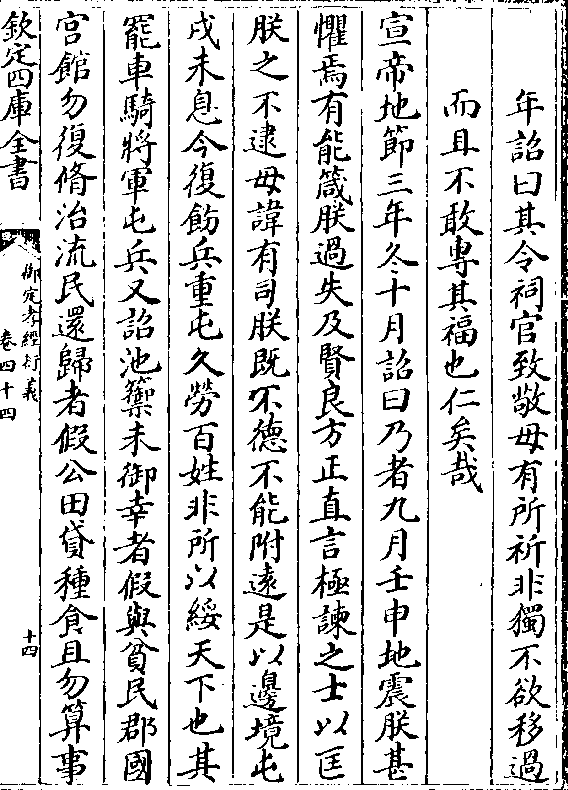 年詔曰其令祠官致敬毋有所祈非獨不欲移過
而且不敢專其福也仁矣哉
宣帝地節三年冬十月詔曰乃者九月壬申地震朕甚
懼焉有能箴朕過失及賢良方正直言極諫之士以匡
朕之不逮毋諱有司朕既不德不能附遠是以邊境屯
戍未息今復飭兵重屯久勞百姓非所以綏天下也其
罷車騎將軍屯兵又詔池籞未御幸者假與貧民郡國
宫館勿復脩治流民還歸者假公田貸種食且勿算事
欽定四庫全書
御定孝經衍義
卷四十四
十四